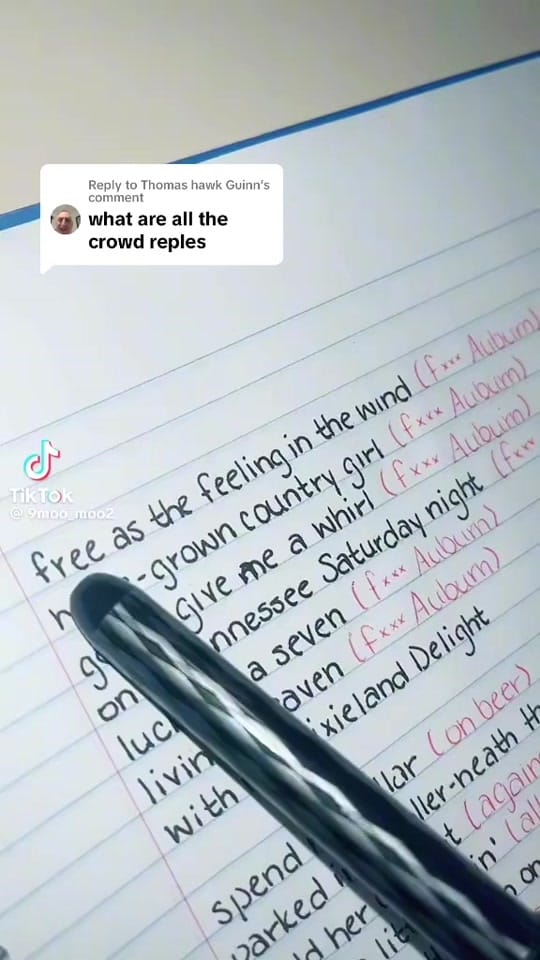 Reply to Thomas hawk Guinn's
comment
what are all the
crowd reples
TikTok
@ 9moo_moo2
free as the feeling in the wind (fxxx Auburn)
-grown country girl (fxxx Auburn)
give me a whirl (fxxx Auburn)
on nnessee Saturday night (fxxx
luc a seven (fxxx Auburn)
livin aven (fxxx Auburn)
with ixieland Delight
spend llar (on beer)
parked ller-neath th
d her t (again
lit in' (all
on